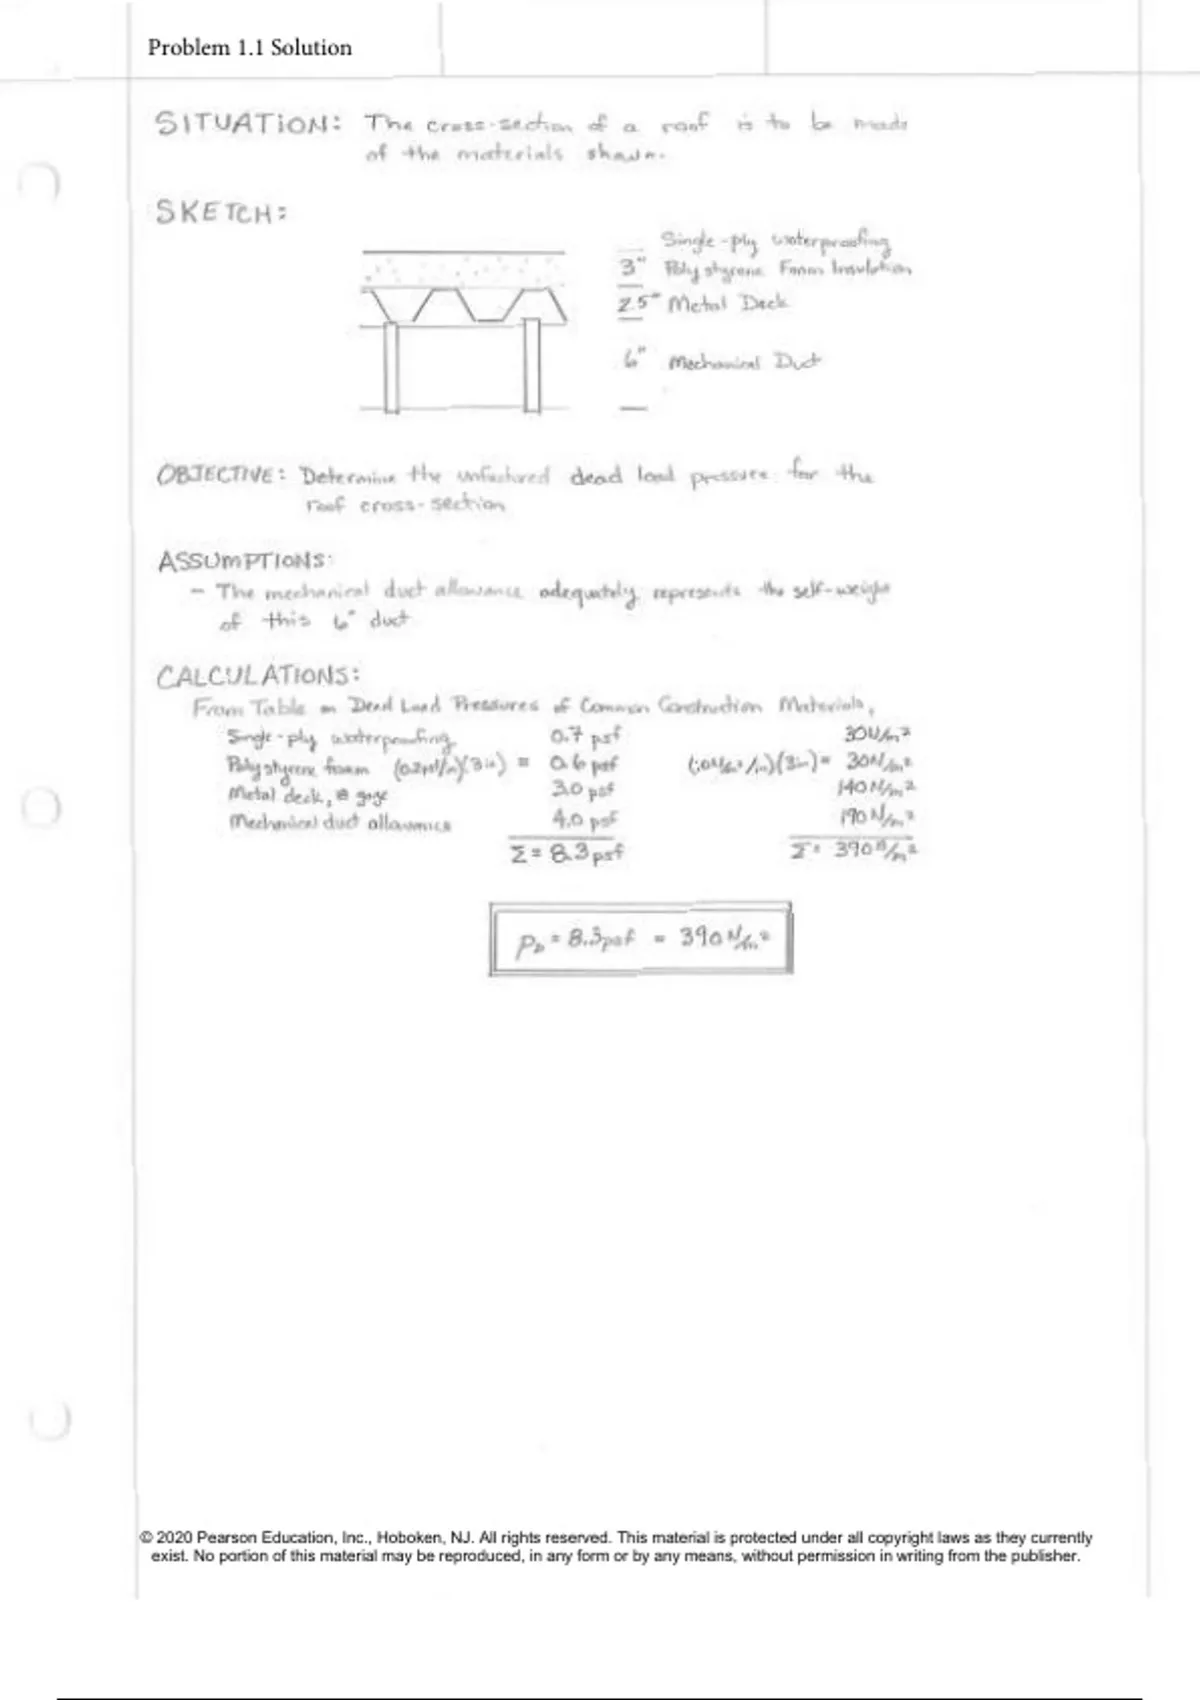 Problem 1.1 Solution
SITUATION: The cross-section of a roof is to be made
of the materials shown.
SKETCH:
Single-ply waterproofing
3" Polystyrene Foam Insulation
2.5" Metal Deck
6" Mechanical Duct
OBJECTIVE: Determine the unfactored dead load pressure for the
roof cross-section
ASSUMPTIONS:
- The mechanical duct allowance adequately represents the self-weight
of this 6" duct
CALCULATIONS:
From Table on Dead Load Pressures of Common Construction Materials,
Single-ply waterproofing 0.7 psf 30N/m²
Polystyrene foam (0.2psf/in)(3in) = 0.6 psf (10N/m²/in)(3in) = 30N/m²
Metal deck, 18 gage 3.0 psf 140N/m²
Mechanical duct allowance 4.0 psf 190N/m²
Σ = 8.3psf Σ = 390N/m²
P_D = 8.3psf = 390N/m²
© 2020 Pearson Education, Inc., Hoboken, NJ. All rights reserved. This material is protected under all copyright laws as they currently
exist. No portion of this material may be reproduced, in any form or by any means, without permission in writing from the publisher.